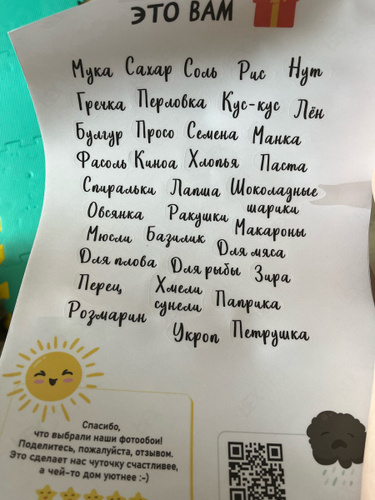 ЭТО ВАМ
Мука Сахар Соль Рис Нут
Гречка Перловка Кус-кус Лён
Булгур Просо Семена Манка
Фасоль Киноа Хлопья Паста
Спиральки Лапша Шоколадные
шарики
Овсянка Ракушки Макароны
Мюсли Базилик Для мяса
Для плова Для рыбы Зира
Перец Хмели
сунели Паприка
Розмарин Укроп Петрушка
Спасибо,
что выбрали наши фотообои!
Поделитесь, пожалуйста, отзывом.
Это сделает нас чуточку счастливее,
а чей-то дом уютнее :-)